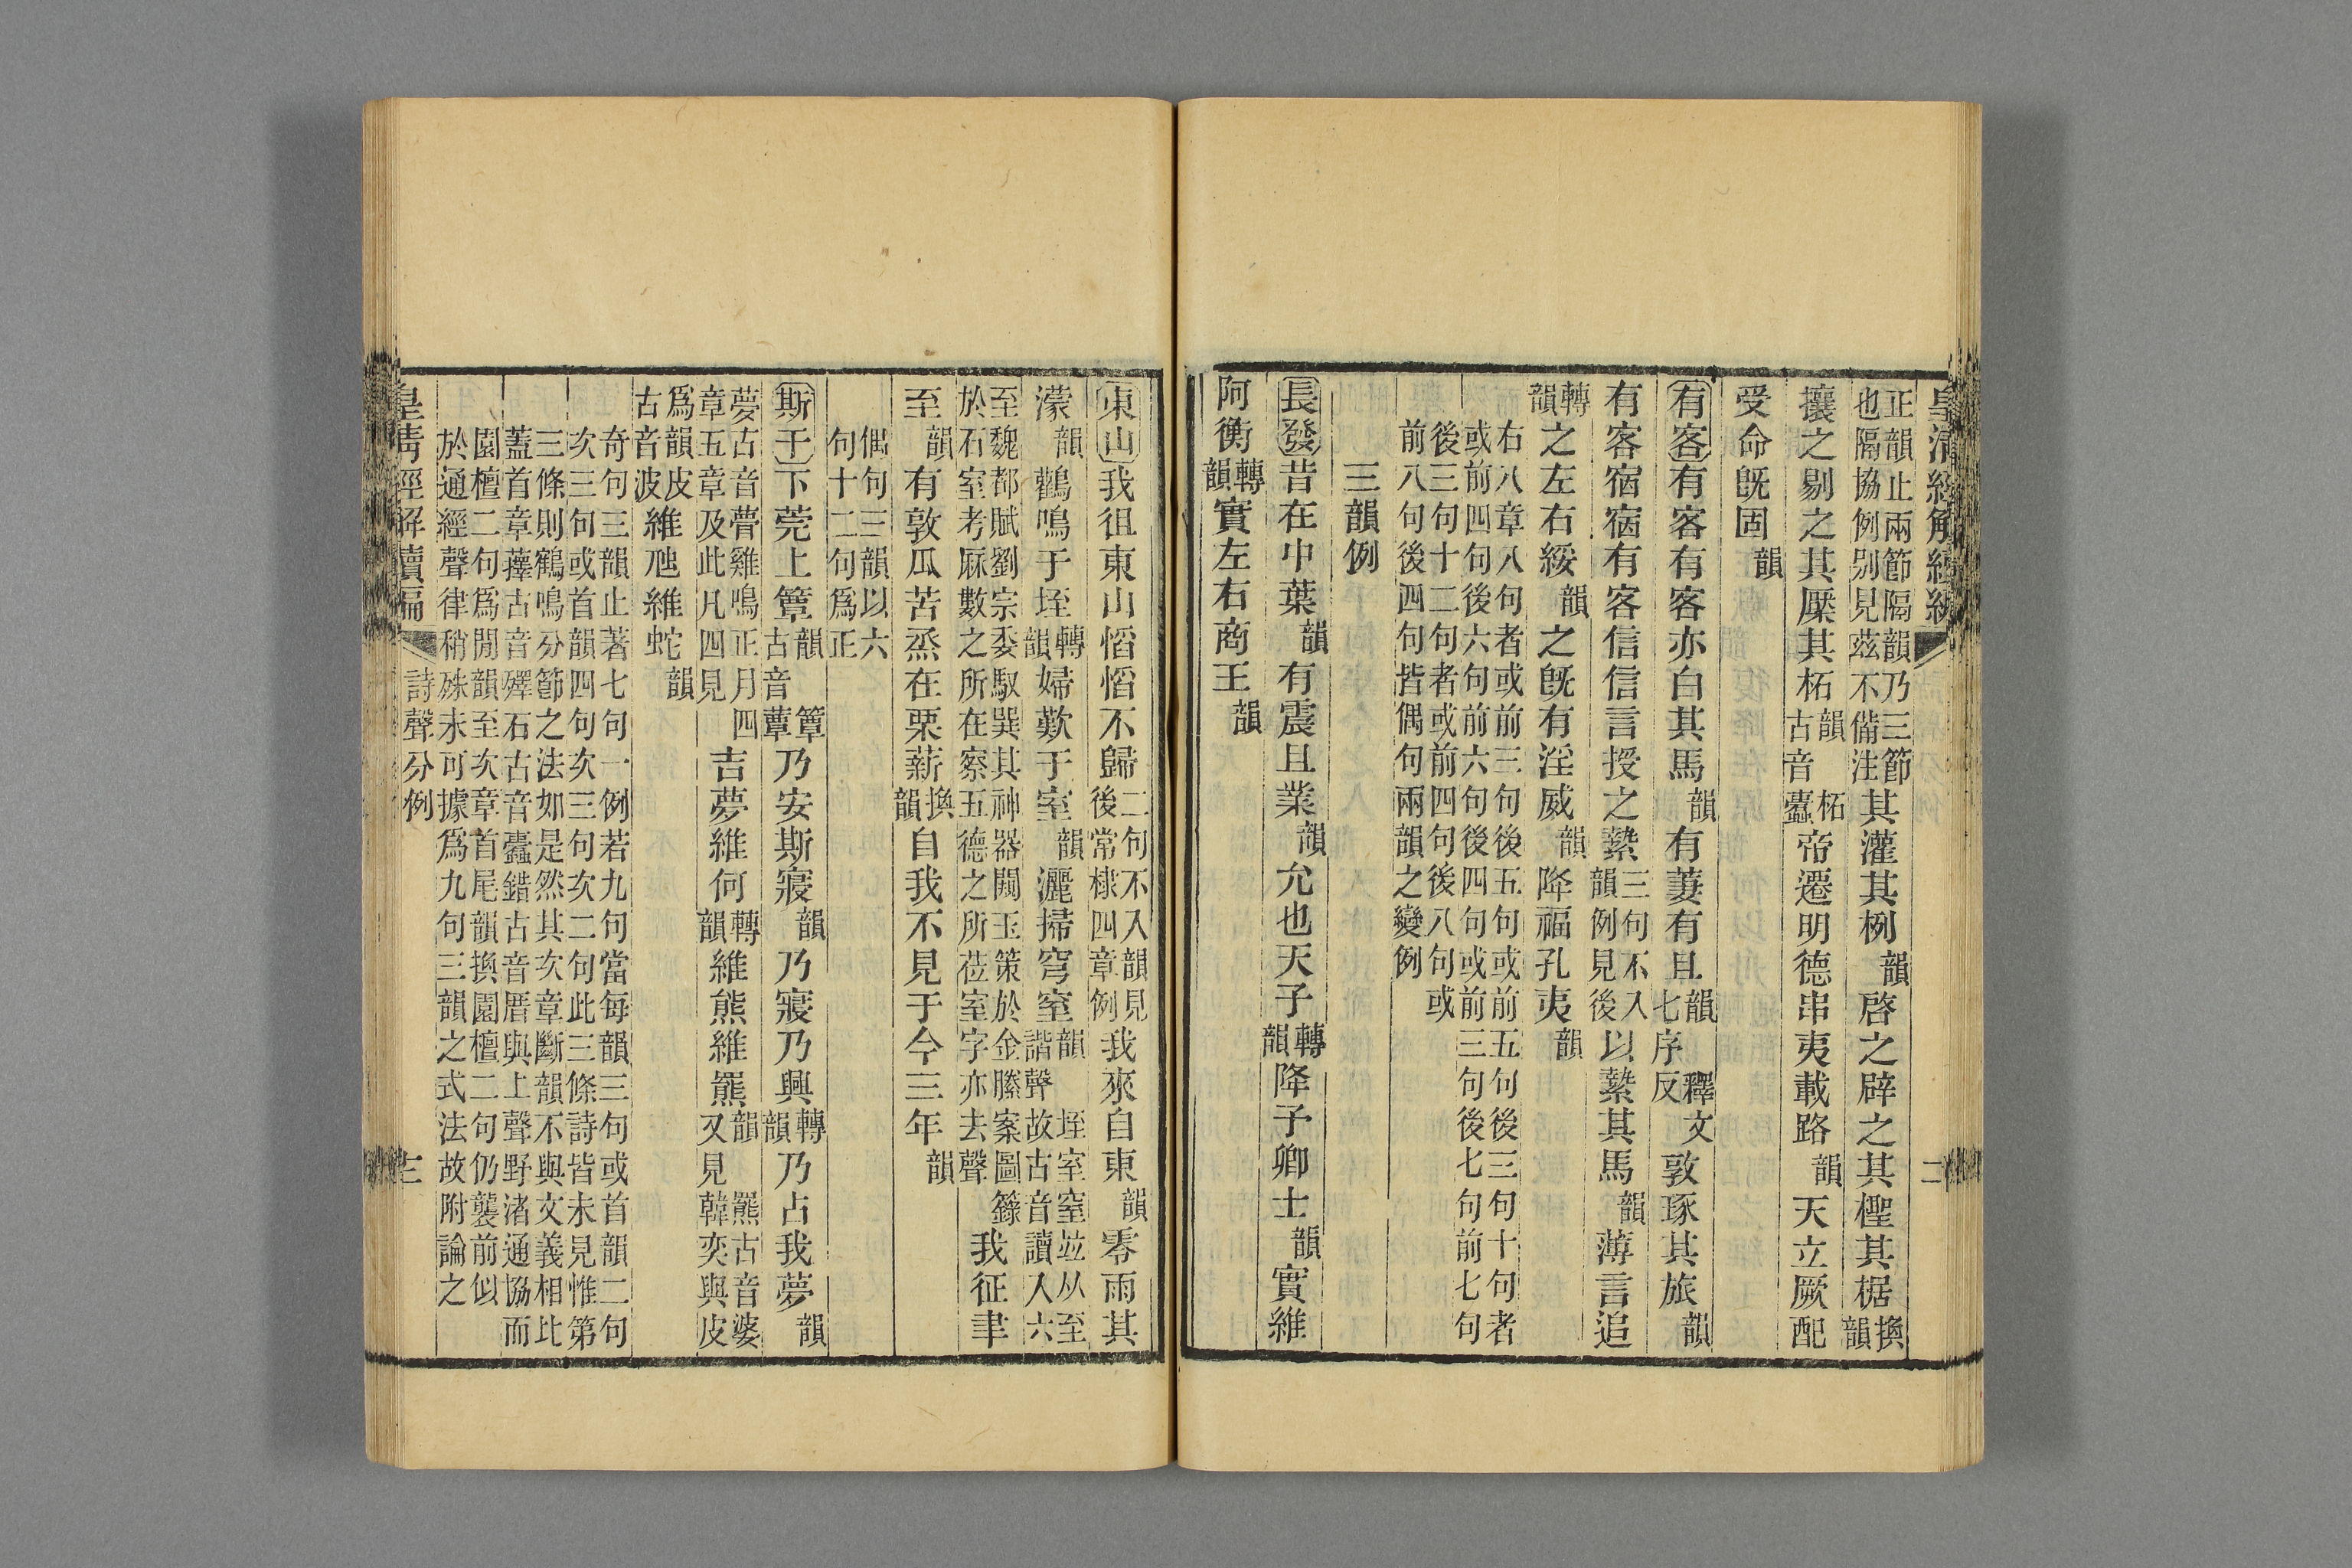 皇清經解續編
二
正韻止兩節隔韻乃三節
也隔協例別見茲不備注其灌其栵韻啓之辟之其檉其椐換韻
攘之剔之其檿其柘韻古音柘蠹帝遷明德串夷載路韻天立厥配
受命旣固韻
有客有客有客亦白其馬韻有萋有且韻七序反釋文敦琢其旅韻
有客宿宿有客信信言授之縶三句不入韻例見後以縶其馬韻薄言追
轉韻之左右綏韻之旣有淫威韻降福孔夷韻
右八章八句者或前三句後五句或前五句後三句十句者
或前四句後六句前六句後四句或前三句後七句前七句
後三句十二句者或前四句後八句或
前八句後四句皆偶句兩韻之變例
三韻例
長發昔在中葉韻有震且業韻允也天子轉韻降予卿士韻實維
阿衡轉韻實左右商王韻
東山我徂東山慆慆不歸二句不入韻見後常棣四章例我來自東韻零雨其
濛韻鸛鳴于垤轉韻婦歎于室韻灑掃穹窒韻諧聲垤室窒竝从至故古音讀入六
至魏都賦劉宗委馭巽其神器闚玉策於金縢案圖籙
於石室考厤數之所在察五德之所莅室字亦去聲我征聿
至韻有敦瓜苦烝在栗薪換韻自我不見于今三年韻
偶句三韻以六
句十二句爲正
斯干下莞上簟韻古音簟蕈乃安斯寢韻乃寢乃興轉韻乃占我夢韻
夢古音瞢雞鳴正月四
章五章及此凡四見吉夢維何轉韻維熊維羆韻又見羆古音婆韓奕與皮
爲韻皮
古音波維虺維蛇韻
奇句三韻止著七句一例若九句當每韻三句或首韻二句
次三句或首韻四句次三句次二句此三條詩皆未見惟第
三條則鶴鳴分節之法如是然其次章斷韻不與文義相比
蓋首章蘀古音殬石古音蠹錯古音厝與上聲野渚通協而
園檀二句爲閒韻至次章首尾韻換園檀二句仍襲前似
於通經聲律稍殊未可據爲九句三韻之式法故附論之
皇淸經解續編
詩聲分例
三